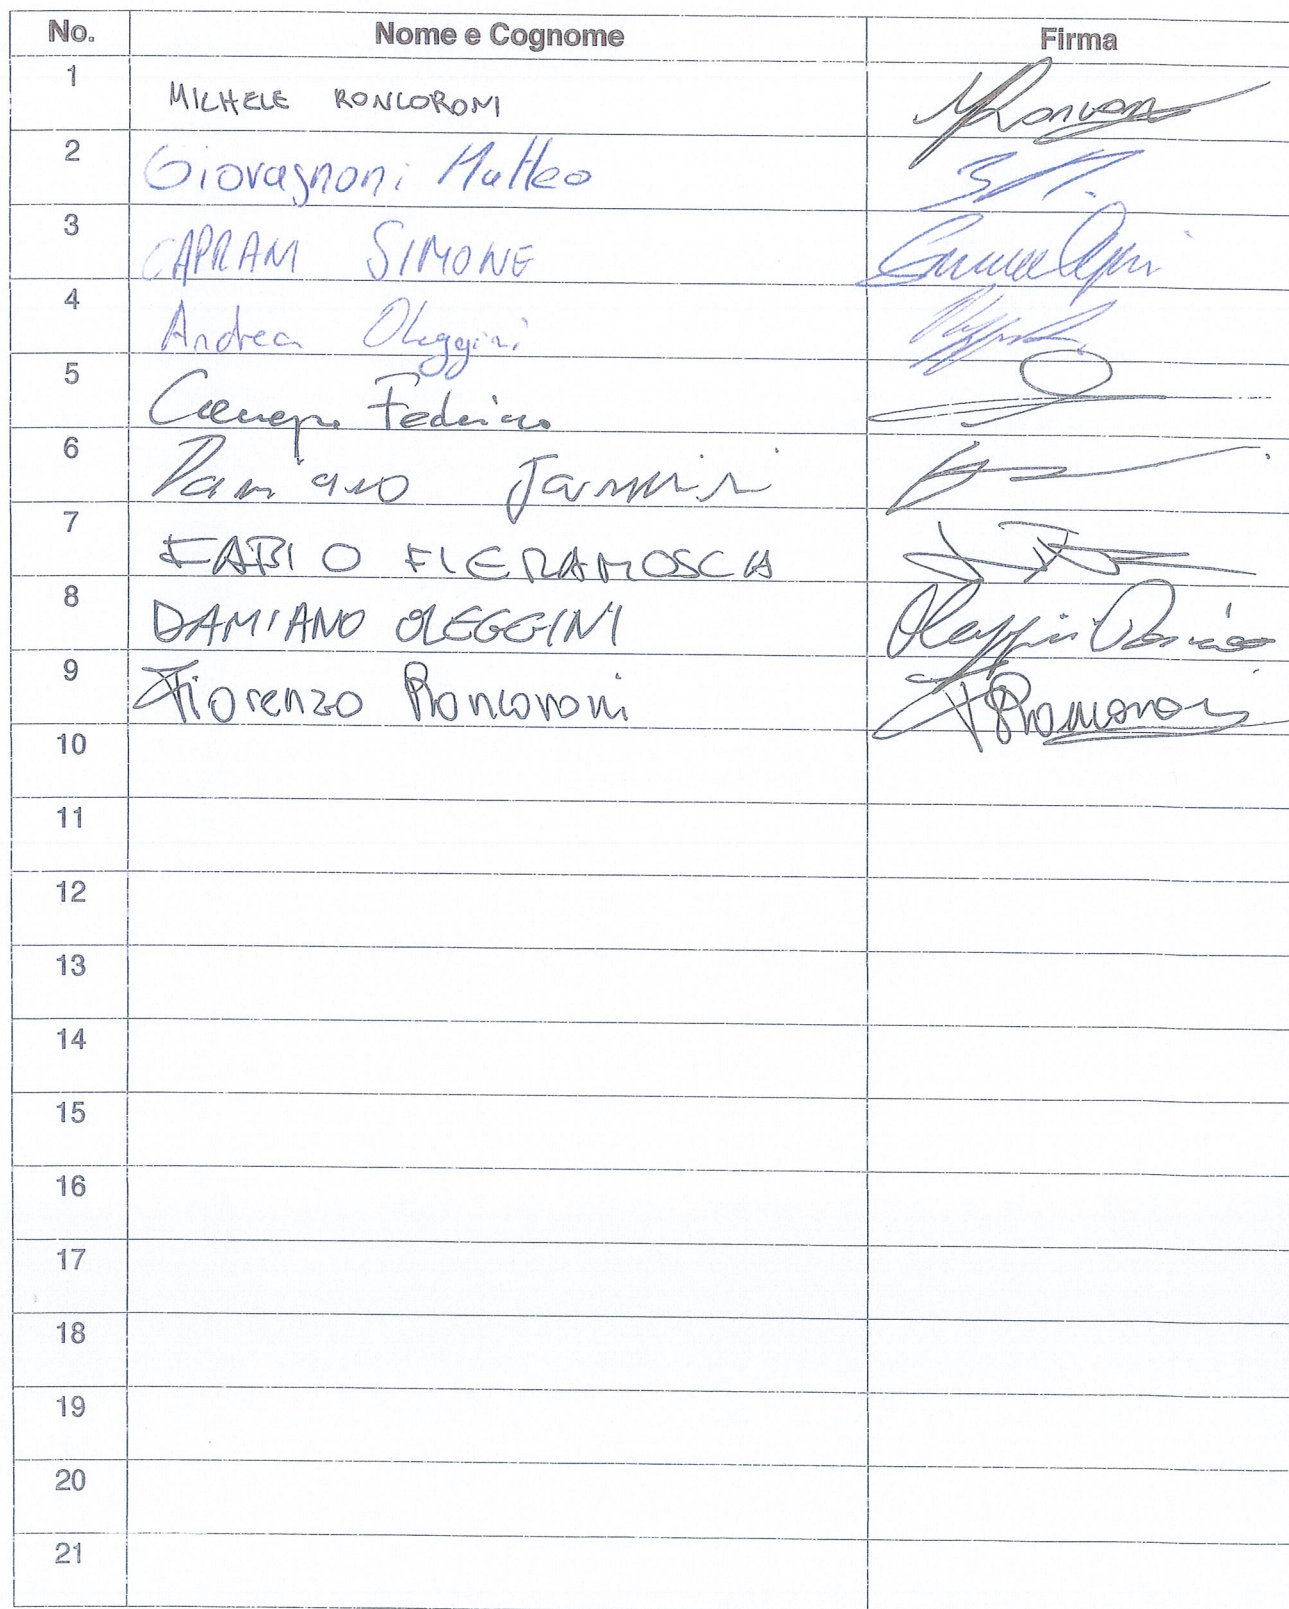 No. Nome e Cognome Firma
1 MICHELE RONCORONI
2 Giovagnoni Matteo
3 CAPRANI SIMONE
4 Andrea Oleggini
5 Federico
6 Damiano
7 FABIO FIERAMOSCA
8 DAMIANO OLEGGINI Oleggini Damiano
9 Fiorenzo Roncoroni F Roncoroni
10
11
12
13
14
15
16
17
18
19
20
21